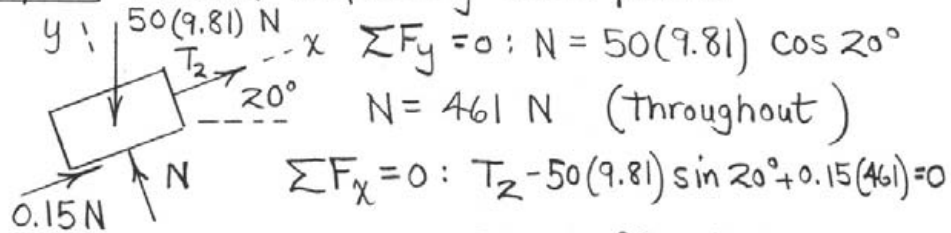 y 50(9.81) N
T₂ x
20°
N
0.15N
ΣFy = 0 : N = 50(9.81) cos 20°
N = 461 N (throughout)
ΣFx = 0 : T₂ - 50(9.81) sin 20° + 0.15(461) = 0